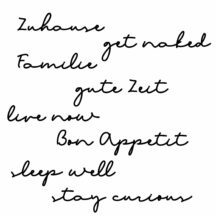 Zuhause
get naked
Familie
gute Zeit
live now
Bon Appetit
sleep well
stay curious